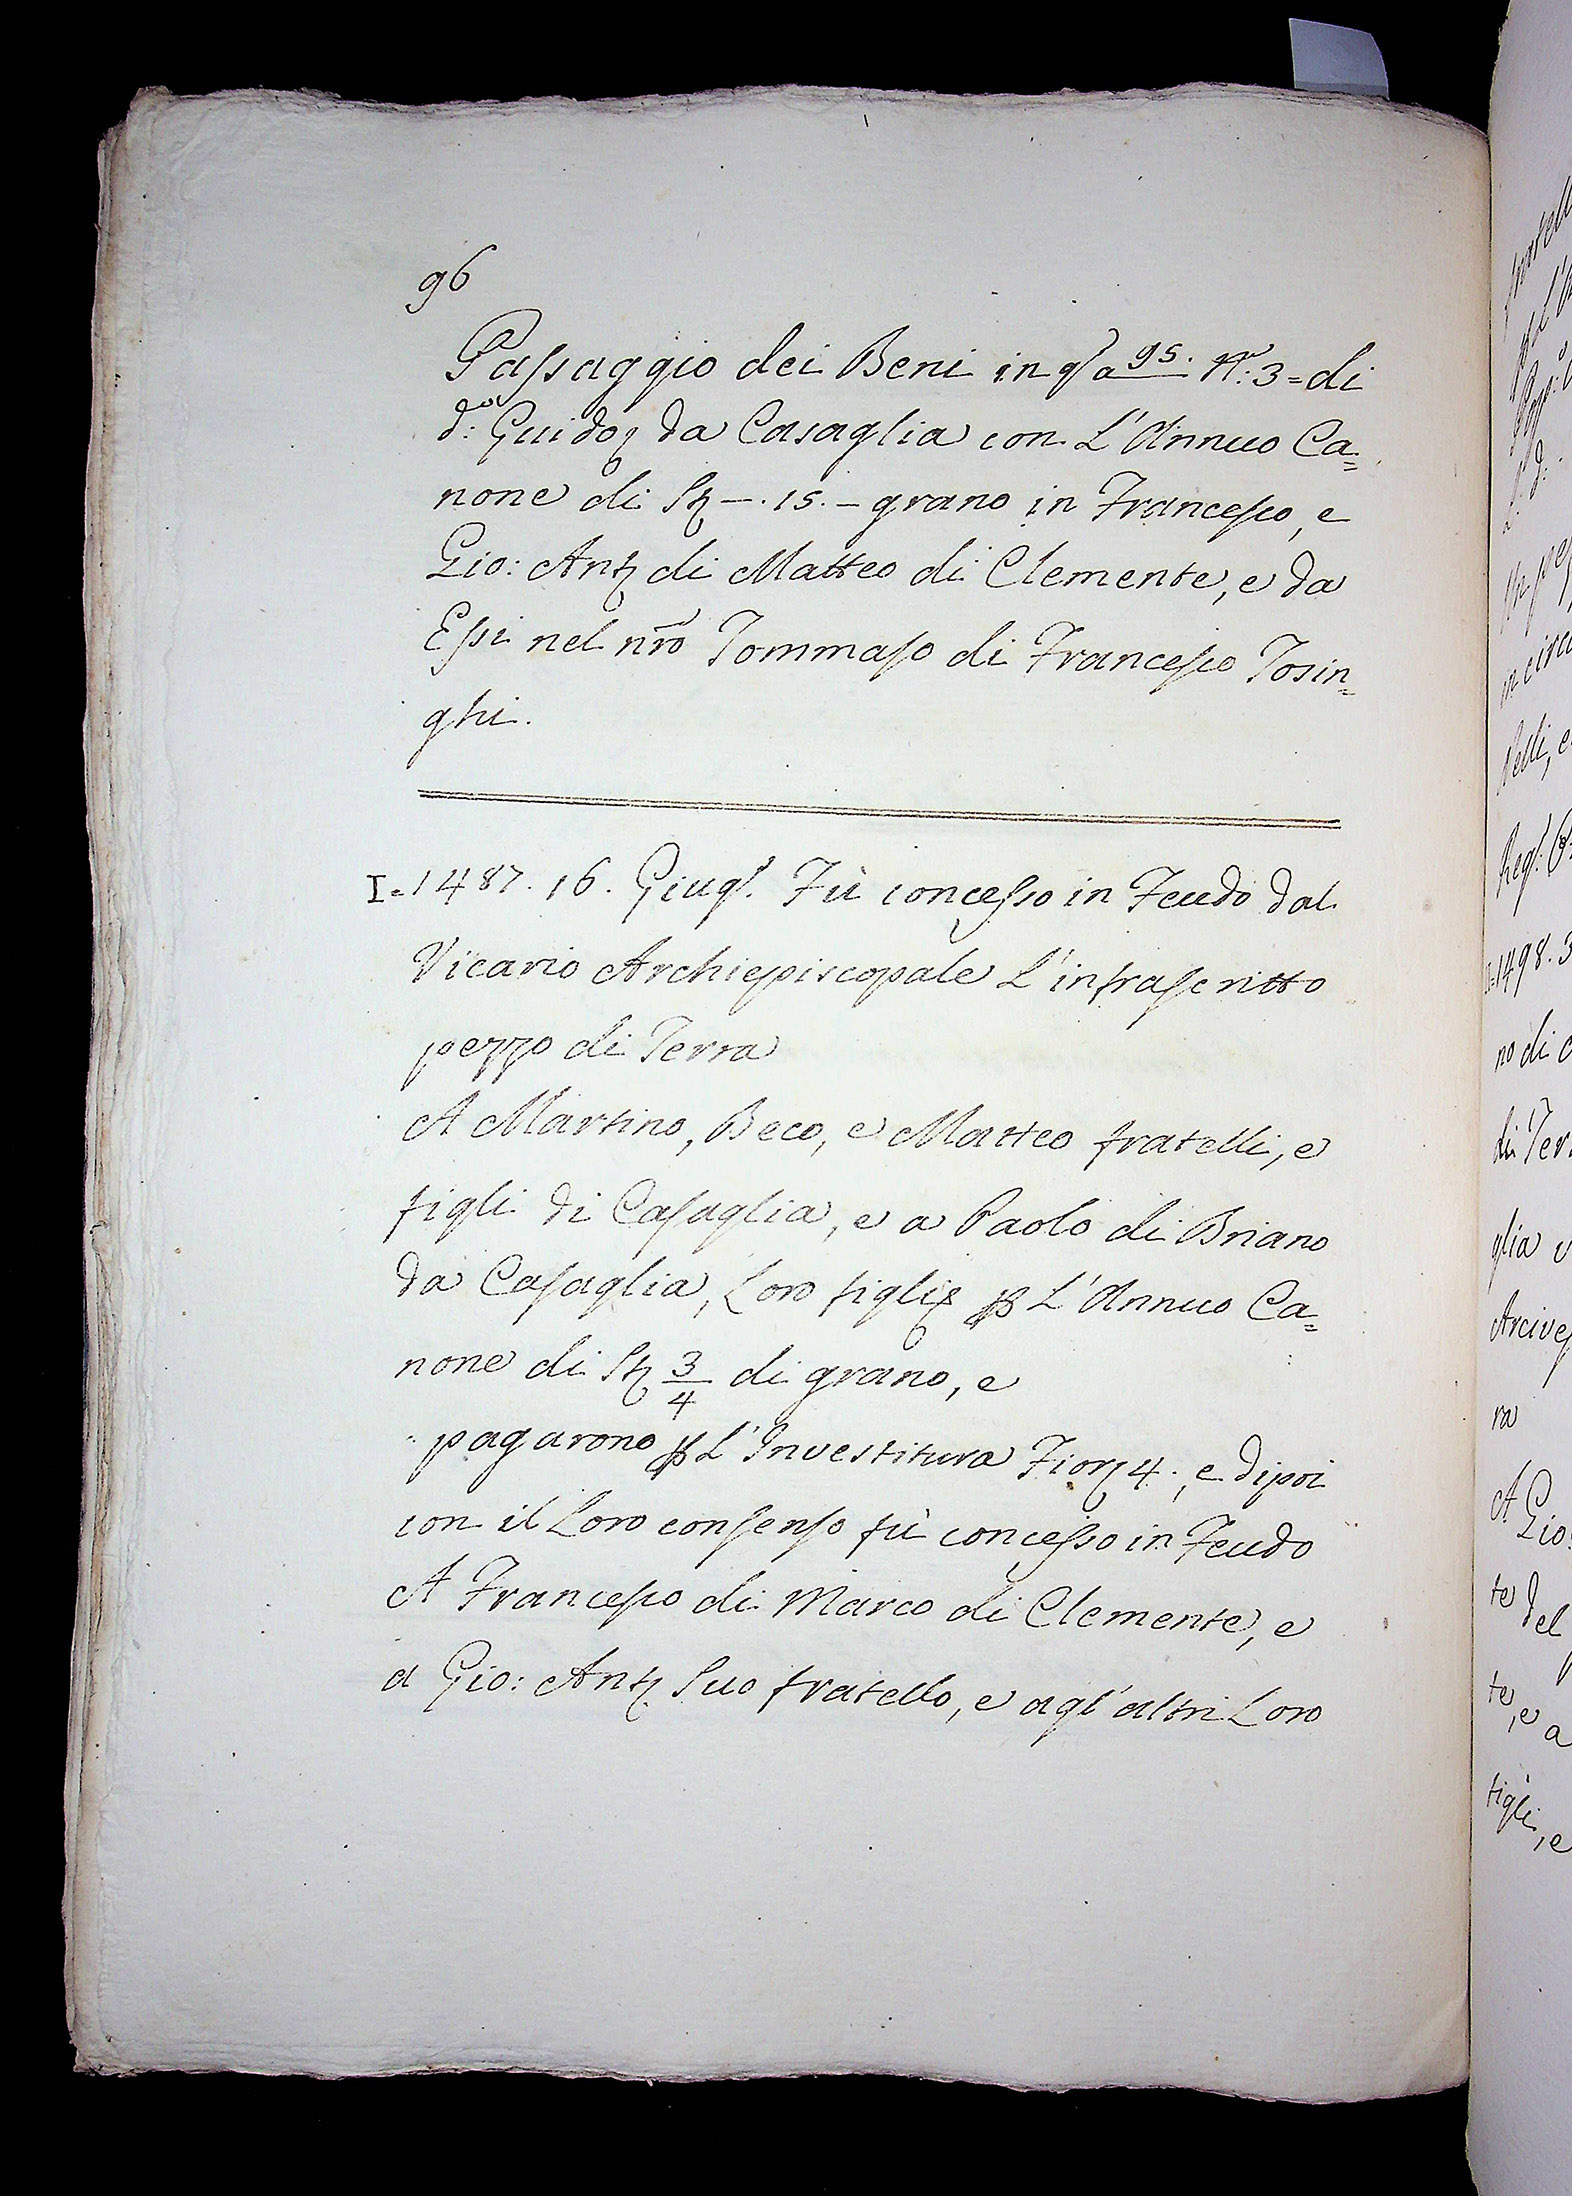 96
Passaggio dei Beni in q.o a 95. N.o: 3 = di
d.o: Guido, da Casaglia con L'Annuo Ca=
none di St. —. 15. — grano in Francesco, e
Gio: Ant. di Matteo di Clemente, e da
Essi nel nro Tommaso di Francesco Tosin=
ghi.
I = 1487. 16. Giug.o Fù concesso in Feudo dal
Vicario Archiepiscopale L'infrascritto
pezzo di Terra
A Martino, Beco, e Matteo fratelli, e
figli di Casaglia, e a Paolo di Briano
da Casaglia, Loro figli p L'Annuo Ca=
none di St. 3/4 di grano, e
pagarono p L'Investitura Fior. 4., e dipoi
con il Loro consenso fù concesso in Feudo
A Francesco di Marco di Clemente, e
a Gio: Ant. Suo fratello, e agl'altri Loro
1498. 3
no di
di Ter
glia
Arcives
ra
A Gio:
te del
te, e a
figli, e